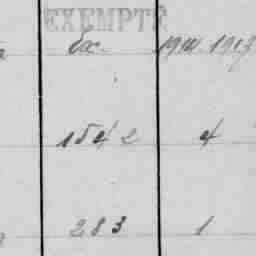 EXEMPTÉ
Ex. 1914 1915
1542 4
283 1